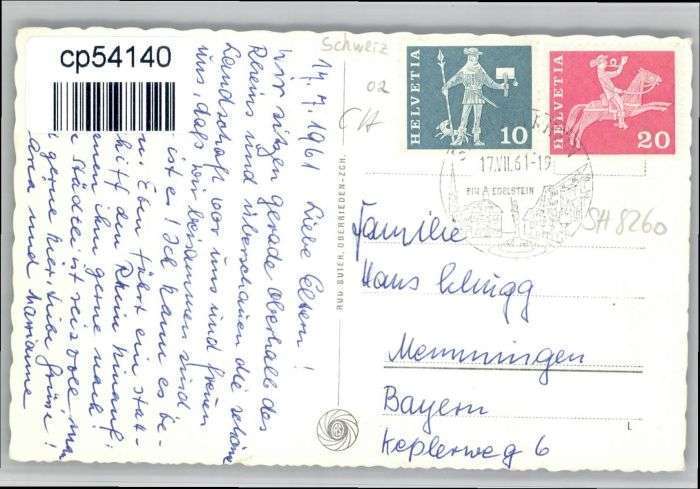 cp54140
Schweiz
02
CH
HELVETIA
10
HELVETIA
20
17.VII.61-19
EIN EDELSTEIN
SH 8260
14.7.1961 Liebe Eltern!
Wir sitzen gerade oberhalb des
Rheins und überschauen die schöne
Landschaft vor uns und freuen
uns, daß wir beisammen sind.
ist es! Ich kann es be-
Eben fährt ein statt-
hiff den Rhein hinauf;
ihm gerne nach!
Städtle ist reizvoll, man
gerne hier. Liebe Grüße!
und Marianne
HUG BUTER, OBERRIEDEN-ZCH.
Familie
Hans
Memmingen
Bayern
Keplerweg 6
I.